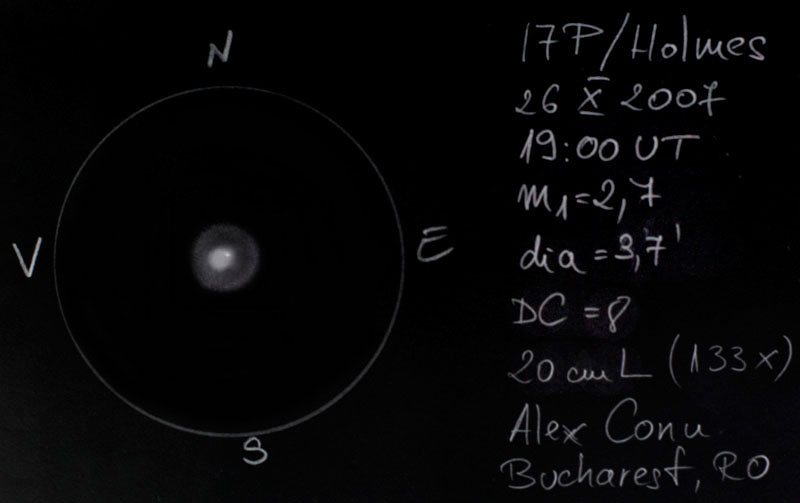 N
V
E
S
17P/Holmes
26 X 2007
19:00 UT
m1=2,7
dia=3,7'
DC=8
20 cm L (133x)
Alex Conu
Bucharest, RO